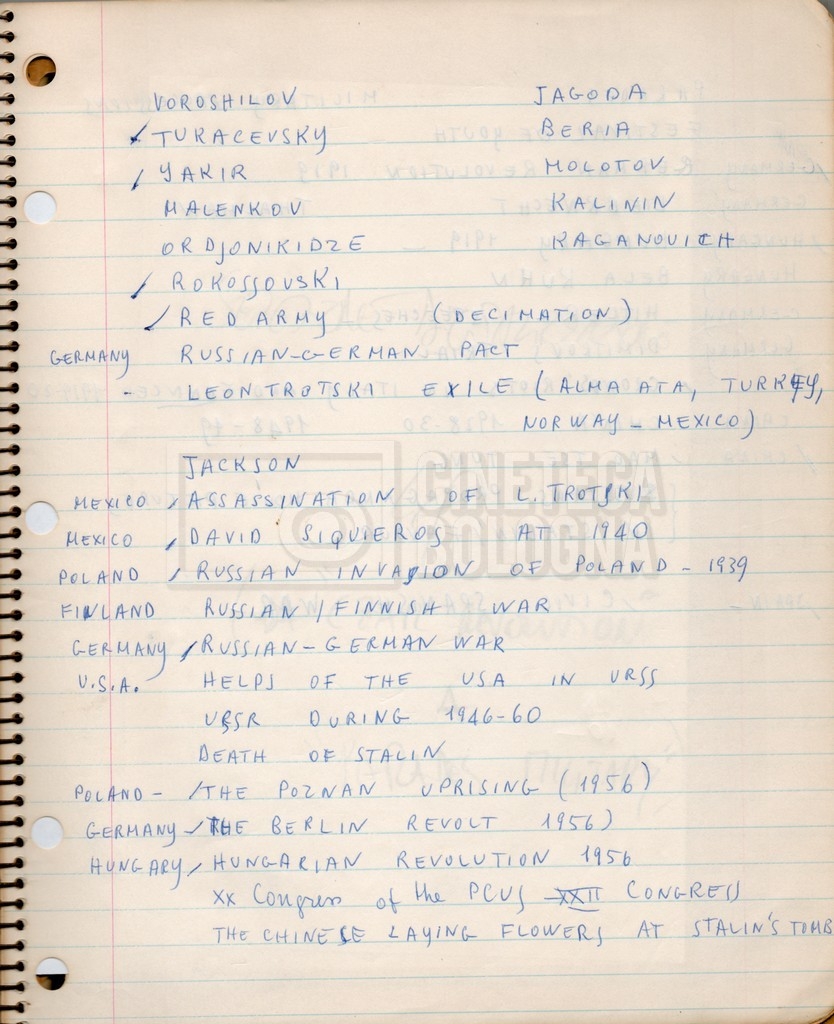 VOROSHILOV JAGODA
TUKACEVSKY BERIA
YAKIR MOLOTOV
MALENKOV KALININ
ORDJONIKIDZE KAGANOVICH
ROKOSSOVSKI
RED ARMY (DECIMATION)
GERMANY RUSSIAN-GERMAN PACT
- LEON TROTSKI EXILE (ALMA ATA, TURKEY,
NORWAY - MEXICO)
JACKSON
MEXICO / ASSASSINATION OF L. TROTSKI
MEXICO / DAVID SIQUIEROS AT 1940
POLAND / RUSSIAN INVASION OF POLAND - 1939
FINLAND RUSSIAN / FINNISH WAR
GERMANY / RUSSIAN-GERMAN WAR
U.S.A. HELPS OF THE USA IN URSS
URSR DURING 1946-60
DEATH OF STALIN
POLAND - / THE POZNAN UPRISING (1956)
GERMANY - / THE BERLIN REVOLT 1956)
HUNGARY / HUNGARIAN REVOLUTION 1956
XX Congress of the PCUS XXII CONGRESS
THE CHINESE LAYING FLOWERS AT STALIN'S TOMB
CINETECA
BOLOGNA